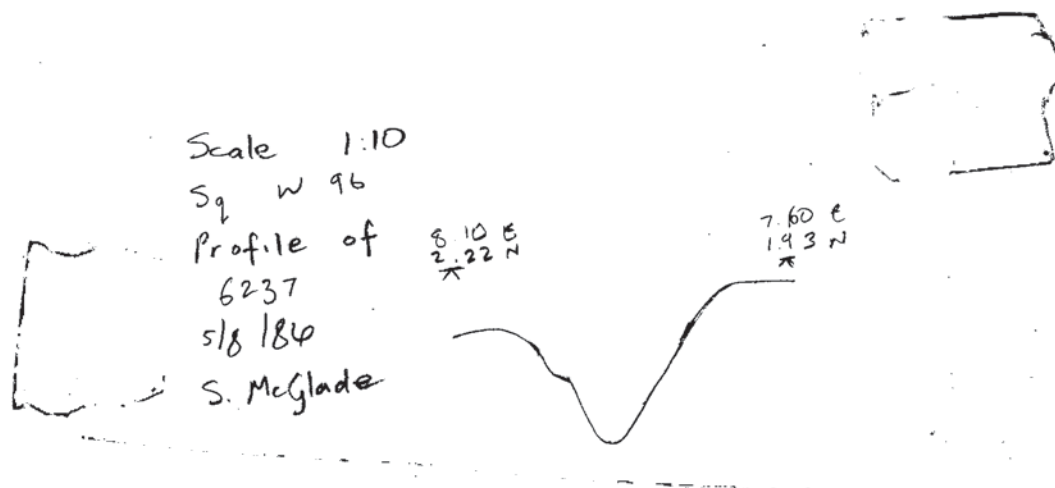 Scale 1:10
Sq W 96
Profile of
6237
5/8/86
S. McGlade
8.10 E
2.22 N
7.60 E
1.93 N